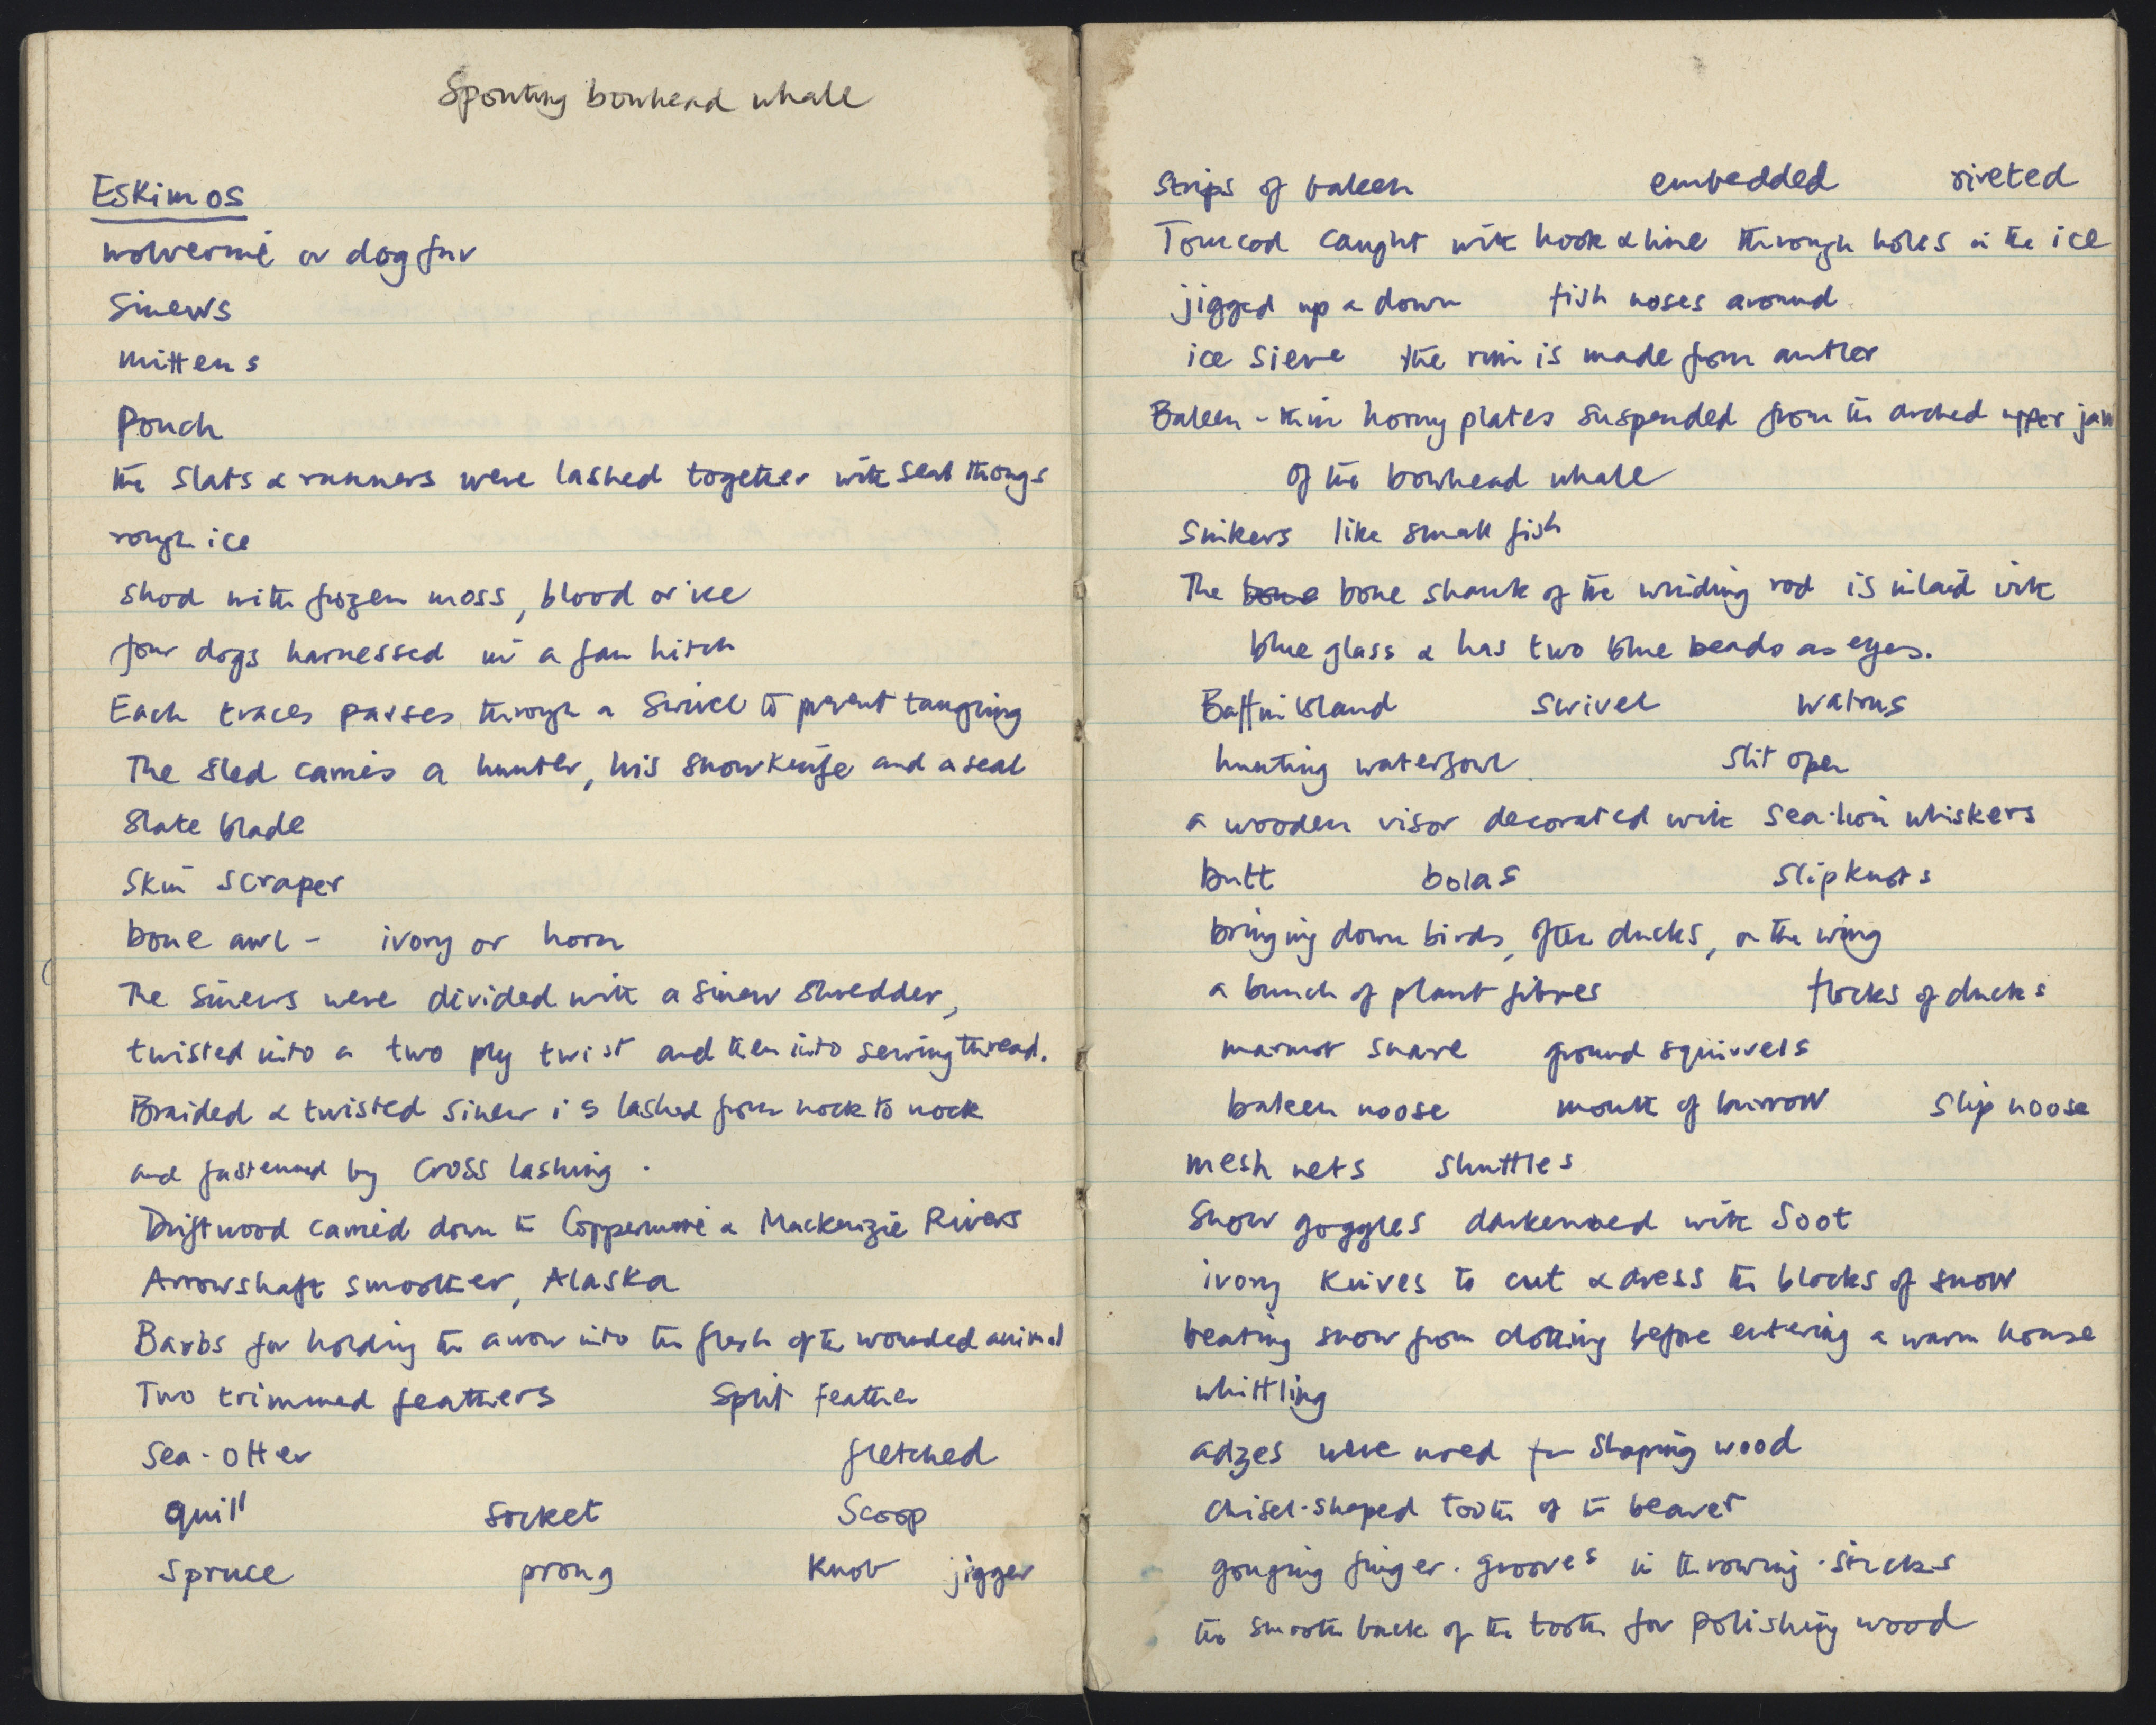 Spouting bowhead whale
Eskimos
wolverine or dog fur
Sinews
mittens
Pouch
the slats & runners were lashed together with seal thongs
rough ice
shod with frozen moss, blood or ice
four dogs harnessed in a fan hitch
Each traces passes through a swivel to prevent tangling
The sled carries a hunter, his snow knife and a seal
Slate blade
Skin scraper
bone awl - ivory or horn
The sinews were divided with a sinew shredder,
twisted into a two ply twist and then into sewing thread.
Braided & twisted sinew is lashed from nock to nock
and fastened by cross lashing.
Driftwood carried down the Coppermine & Mackenzie Rivers
Arrowshaft smoother, Alaska
Barbs for holding the arrow into the flesh of the wounded animal
Two trimmed feathers split feather
Sea-otter fletched
quill socket scoop
spruce prong knob jigger
Strips of baleen embedded riveted
Tomcod caught with hook & line through holes in the ice
jigged up & down fish noses around
ice sieve the rim is made from antler
Baleen - thin horny plates suspended from the arched upper jaw
of the bowhead whale
Sinkers like small fish
The bone bone shank of the winding rod is inlaid with
blue glass & has two blue beads as eyes.
Baffin Island swivel walrus
hunting waterfowl slit open
a wooden visor decorated with sea-lion whiskers
butt bolas slipknots
bringing down birds, often ducks, on the wing
a bunch of plant fibres flocks of ducks
marmot snare ground squirrels
baleen noose mouth of burrow slip noose
mesh nets shuttles
Snow goggles darkened with soot
ivory knives to cut & dress the blocks of snow
beating snow from clothing before entering a warm house
whittling
adzes were used for shaping wood
chisel-shaped tooth of the beaver
gouging finger-grooves in throwing-sticks
the smooth back of the tooth for polishing wood